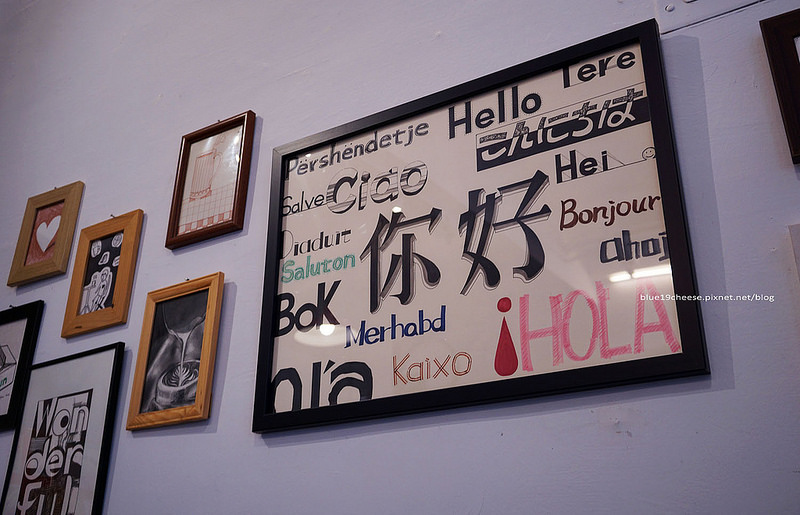 Tere
Hello
Përshëndetje
こんにちは
Hei
Ciao
Salve
你好
Bonjour
Diaduit
Saluton
ahoj
Bok
Merhabd
¡HOLA
Kaixo
Won
der
ful
blue19cheese.pixnet.net/blog